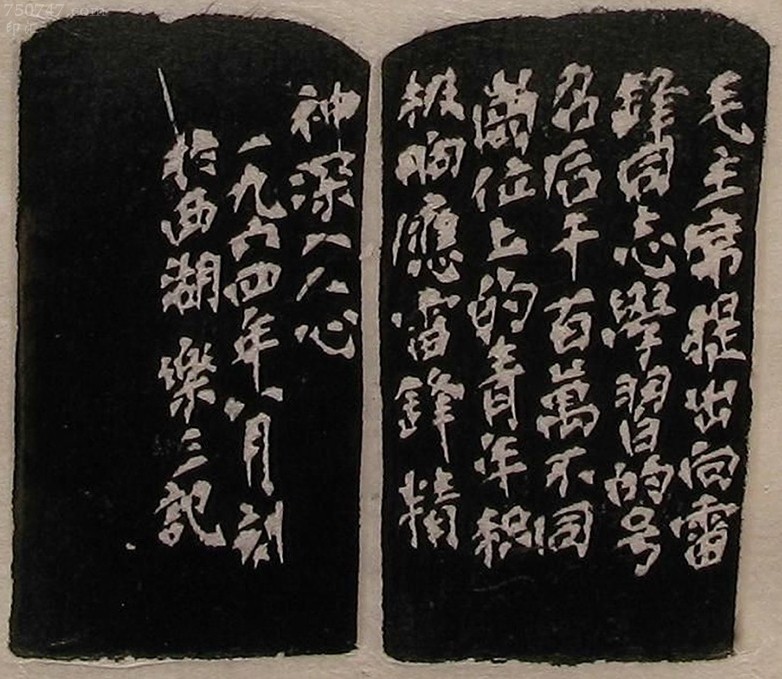 毛主席提出向雷
鋒同志學習的号
召后千百萬不同
崗位上的青年积
极响應雷鋒精
神深入人心
一九六四年八月刻
於西湖 樂三記
750747.com